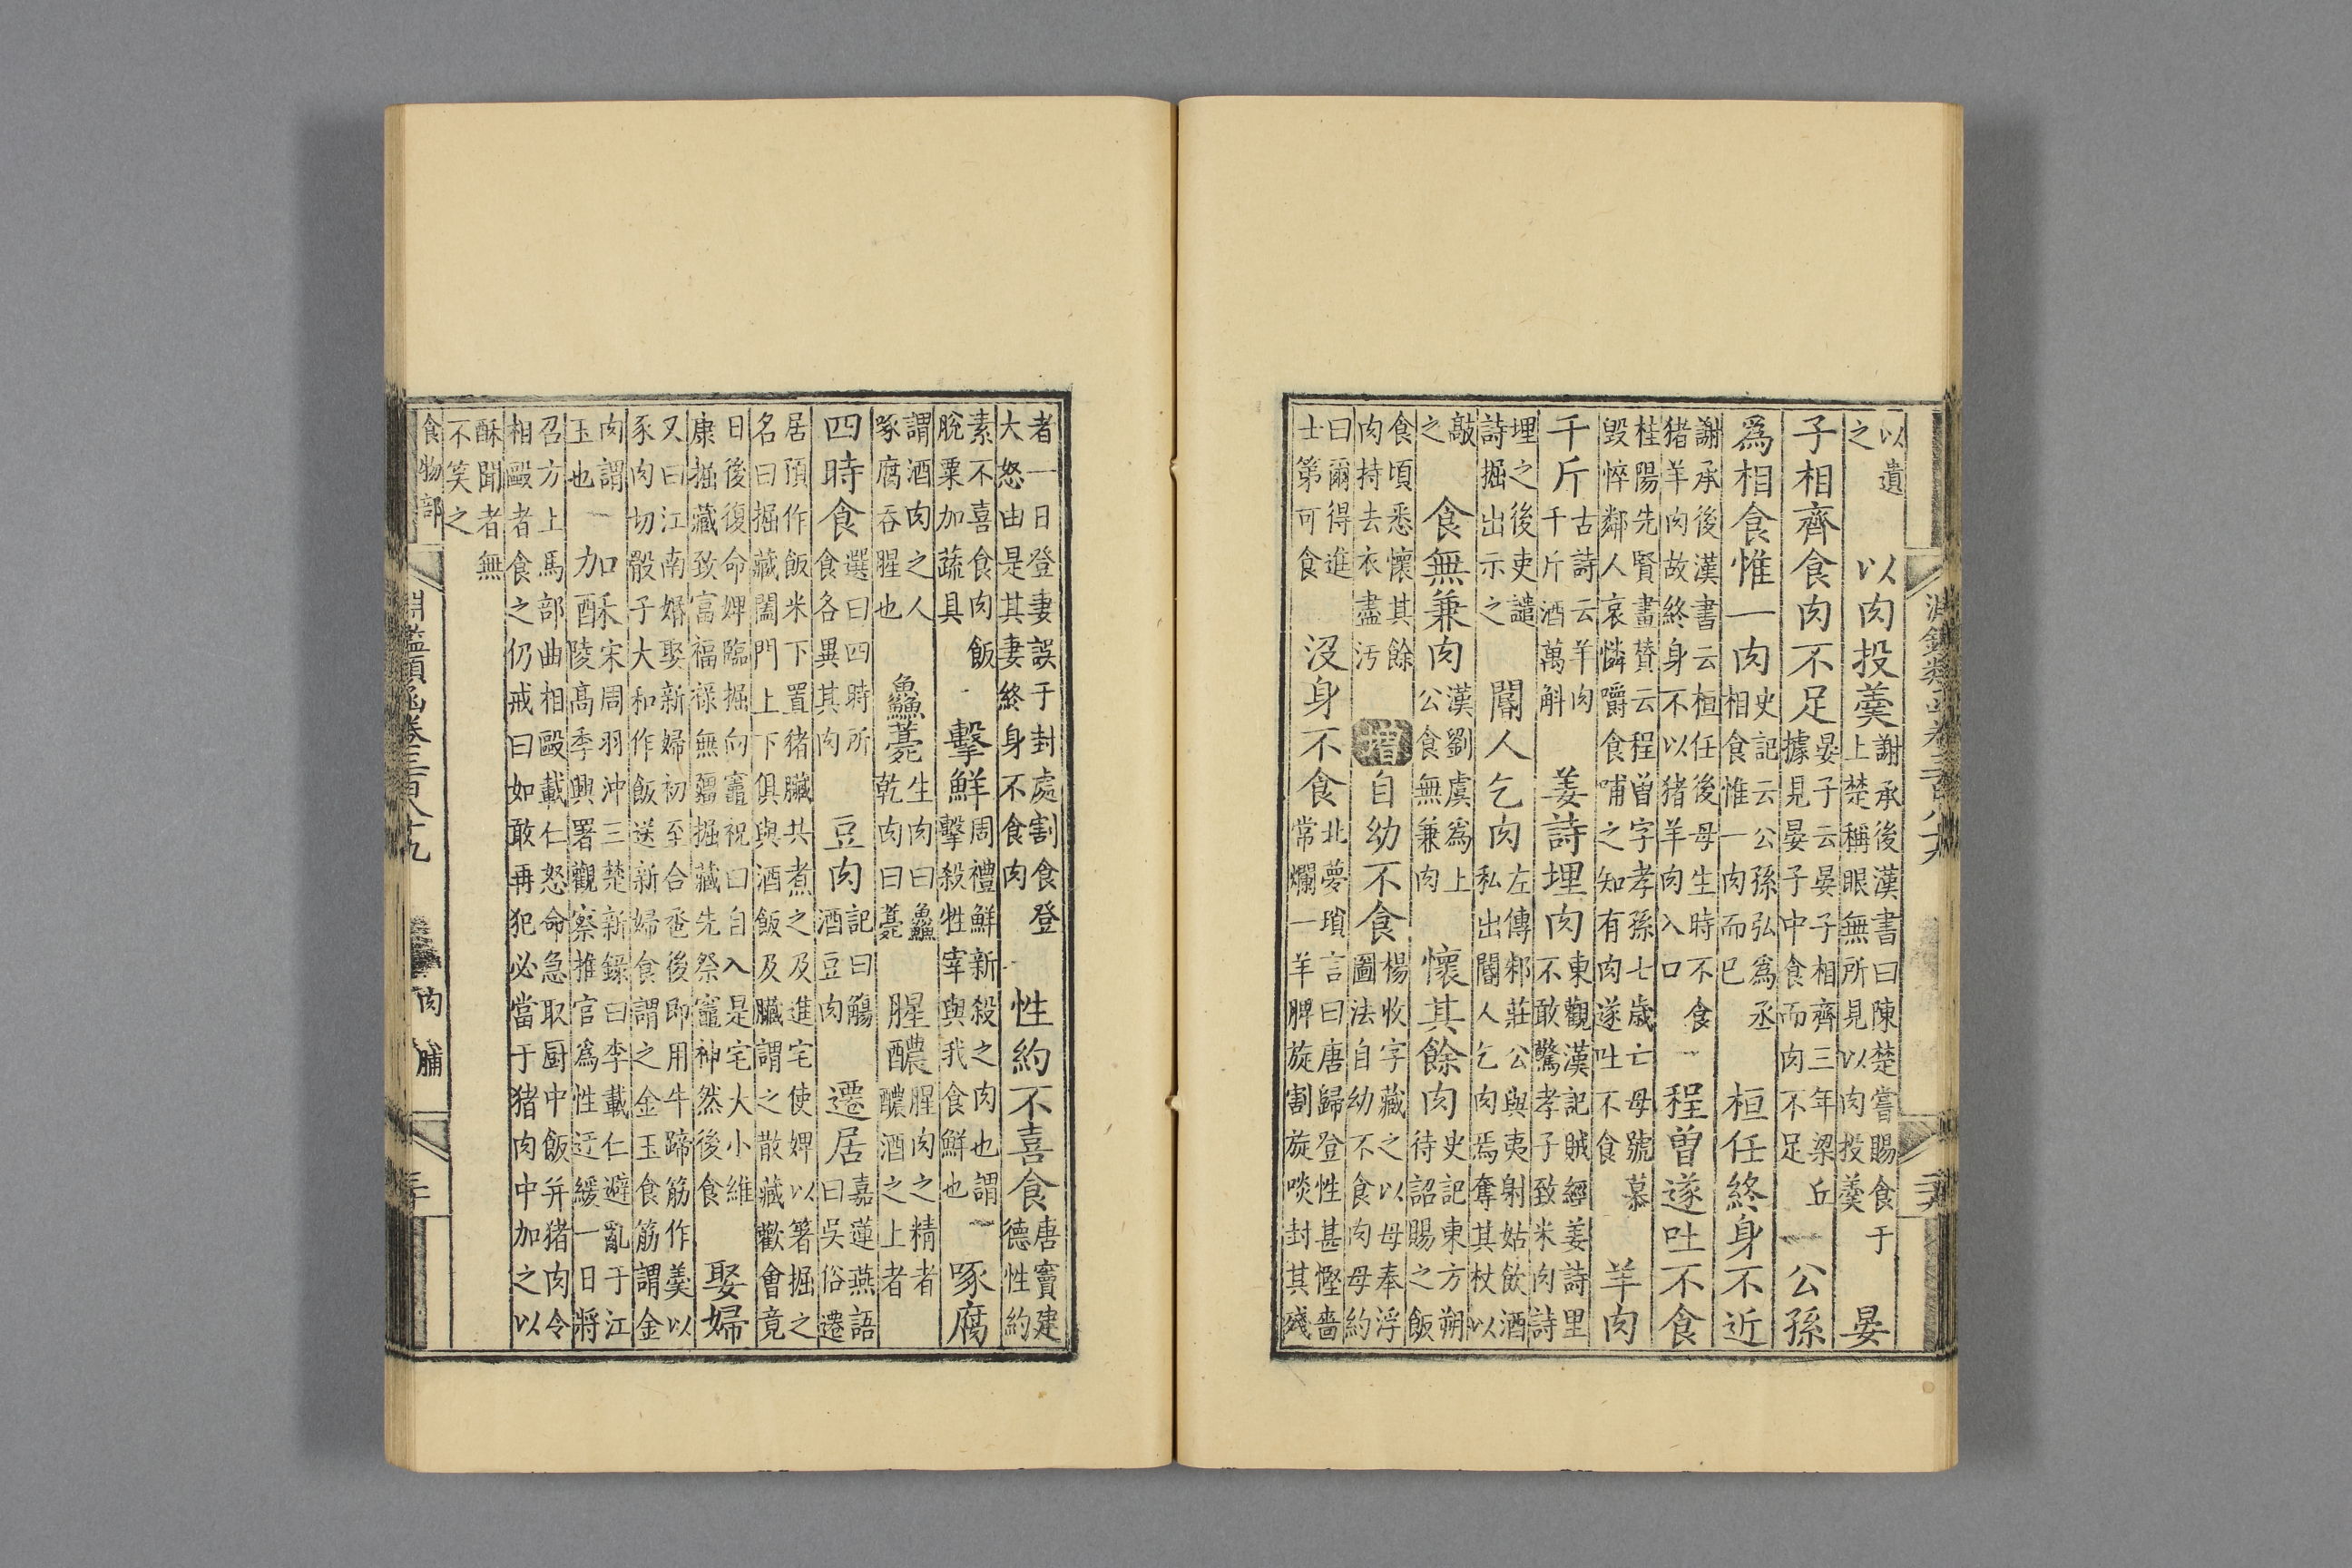 以遺之 以肉投羹 謝承後漢書曰陳楚嘗賜食于上楚稱眼無所見以肉投羹 晏
子相齊食肉不足 晏子云晏子相齊三年梁丘據見晏子中食而肉不足 公孫
爲相食惟一肉 史記云公孫弘爲丞相食惟一肉而已 桓任終身不近
謝承後漢書云桓任後母生時不食猪羊肉故終身不以猪羊肉入口 程曽遂吐不食
桂陽先賢畫賛云程曽字孝孫七歲亡母號慕毀悴鄰人哀憐嚼食哺之知有肉遂吐不食 羊肉
千斤 古詩詩云羊肉千斤酒萬斛 姜詩埋肉 東觀漢記賊經姜詩里不敢驚孝子致米肉詩
埋之後吏譴詩掘出示之 閽人乞肉 左傳邾莊公與夷射姑飲酒私出閽人乞肉焉奪其杖以
敲之 食無兼肉 漢劉虞爲上公食無兼肉 懷其餘肉 史記東方朔待詔賜之飯
食頃悉懷其餘肉持去衣盡汚 增 自幼不食 楊收字藏之以母奉浮圖法自幼不食肉母約
曰爾得進士第可食 沒身不食 北夢瑣言曰唐歸登性甚慳嗇常爛一羊脾旋割旋啖封其殘
者一日登妻誤于封處割食登大怒由是其妻終身不食肉 性約不喜食 唐竇建德性約
素不喜食肉飯脫粟加蔬具 擊鮮 周禮鮮新殺之肉也謂擊殺牲宰與我食鮮也 啄腐
謂酒肉之人啄腐吞腥也 鱻薧 生肉曰鱻乾肉曰薧 腥醲 腥肉之精者醲酒之上者
四時食 選曰四時所食各異其肉 豆肉 記曰觴酒豆肉 遷居 嘉蓮燕語曰吳俗遷
居預作飯米下置猪臟共煮之及進宅使婢以箸掘之名曰掘藏闔門上下俱與酒飯及臟謂之散藏歡會竟
日後復命婢臨掘向竈祝曰自入是宅大小維康掘藏致富福祿無疆掘藏先祭竈神然後食 娶婦
又曰江南婚娶新婦初至合巹後即用牛蹄筋作羹以豕肉切骰子大和作飯送新婦食謂之金玉食筋謂金
肉謂玉也 加禾加酉 宋周羽沖三楚新錄曰李載仁避亂于江陵高季興署觀察推官爲性迂緩一日將
召方上馬部曲相毆載仁怒命急取厨中飯并猪肉令相毆者食之仍戒曰如敢再犯必當于猪肉中加之以
酥聞者無不笑之
食物部 淵鑑類函卷三百八十九 肉 脯